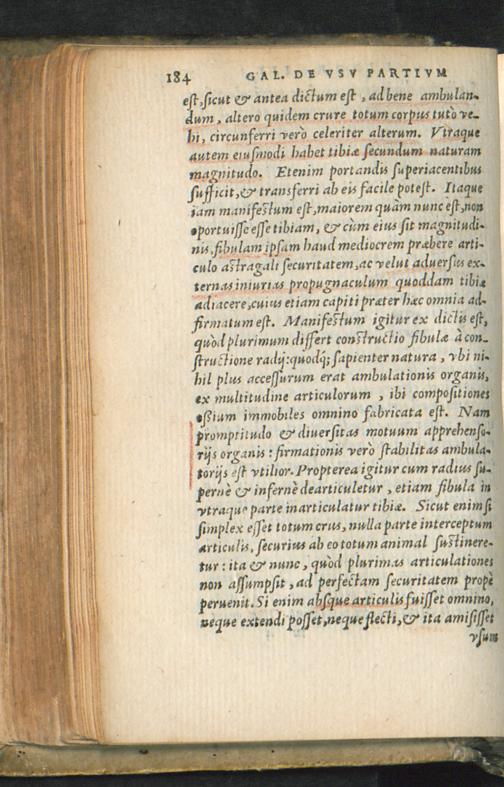 184 GAL. DE VSV PARTIVM
est, sicut & antea dictum est, ad bene ambulan-
dum, altero quidem crure totum corpus tutò ve-
hi, circunferri verò celeriter alterum. Vtraque
autem eiusmodi habet tibiæ secundum naturam
magnitudo. Etenim portandis superiacentibus
sufficit, & transferri ab eis facile potest. Itaque
iam manifestum est, maiorem quàm nunc est, non
oportuisse esse tibiam, & cùm eius sit magnitudi-
nis, fibulam ipsam haud mediocrem præbere arti-
culo astragali securitatem, ac velut aduersus ex-
ternas iniurias propugnaculum quoddam tibiæ
adiacere, cuius etiam capiti præter hæc omnia ad-
firmatum est. Manifestum igitur ex dictis est,
quòd plurimum differt constructio fibulæ à con-
structione radij: quodq́; sapienter natura, vbi ni-
hil plus accessurum erat ambulationis organis,
ex multitudine articulorum, ibi compositiones
ossium immobiles omnino fabricata est. Nam
promptitudo & diuersitas motuum apprehenso-
rijs organis: firmationis verò stabilitas ambula-
torijs est vtilior. Propterea igitur cum radius su-
pernè & infernè dearticuletur, etiam fibula in
vtraque parte inarticulatur tibiæ. Sicut enim si
simplex esset totum crus, nulla parte interceptum
articulis, securius ab eo totum animal sustinere-
tur: ita & nunc, quòd plurimas articulationes
non assumpsit, ad perfectam securitatem propè
peruenit. Si enim absque articulis fuisset omnino,
neque extendi posset, neque flecti, & ita amisisset
vsum